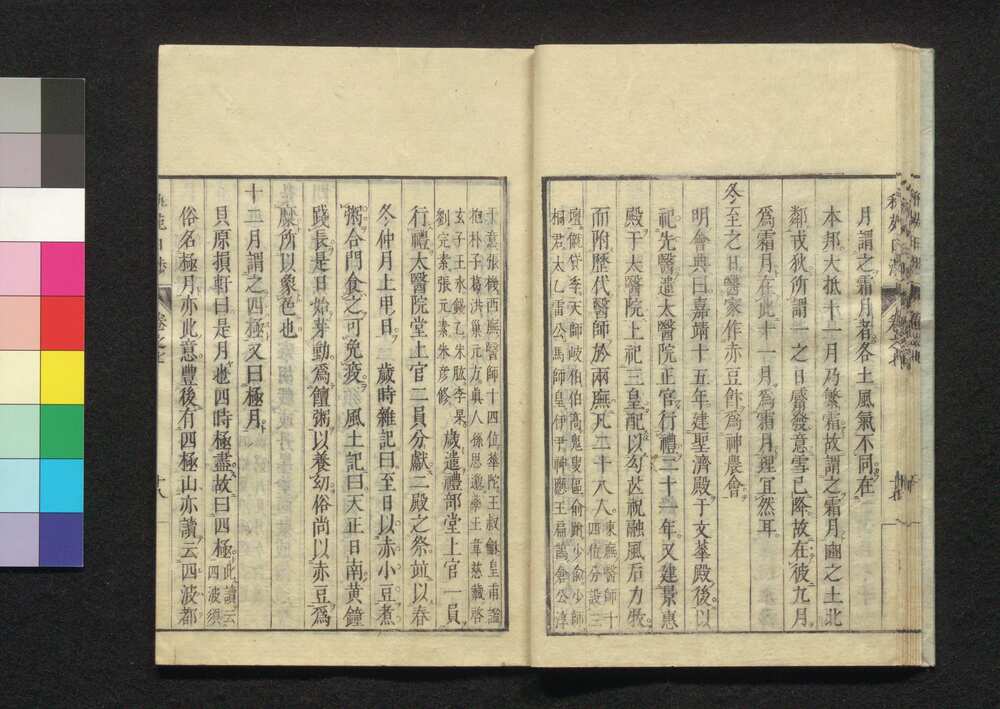 月謂之霜月者各土風氣不同在
本邦大抵十一月乃繁霜故謂之霜月豳之土北
鄰戎狄所謂一之日觱發意雪已降故在彼九月
爲霜月在此十一月爲霜月理宜然耳
冬至之日醫家作赤豆飰爲神農會
明會典曰嘉靖十五年建聖濟殿于文華殿後以
祀先醫遣太醫院正官行禮二十一年又建景惠
殿于太醫院上祀三皇配以勾芒祝融風后力牧
而附歷代醫師於兩廡凡二十八人東廡醫師十四位
僦貸季天師岐伯伯高鬼臾區俞跗少俞少師
桐君太乙雷公馬師皇伊尹神應王扁鵲倉公淳
于意張機西廡醫師十四位華陀王叔和皇甫謐
抱朴子葛洪巢元方真人孫思邈藥王韋慈藏啓
玄子王氷錢乙朱肱李杲
劉完素張元素朱彦修歲遣禮部堂上官一員
行禮太醫院堂上官二員分獻二殿之祭並以春
冬仲月上甲日 歲時雜記曰至日以赤小豆煮
粥合門食之可免疫 風土記曰天正日南黃鐘
踐長是日始芽動爲饘粥以養幼俗尚以赤豆爲
糜所以象色也
十二月謂之四極又曰極月
貝原損軒曰是月也四時極盡故曰四極此讀云四波須
俗名極月亦此意豐後有四極山亦讀云四波都
卷之七
十八